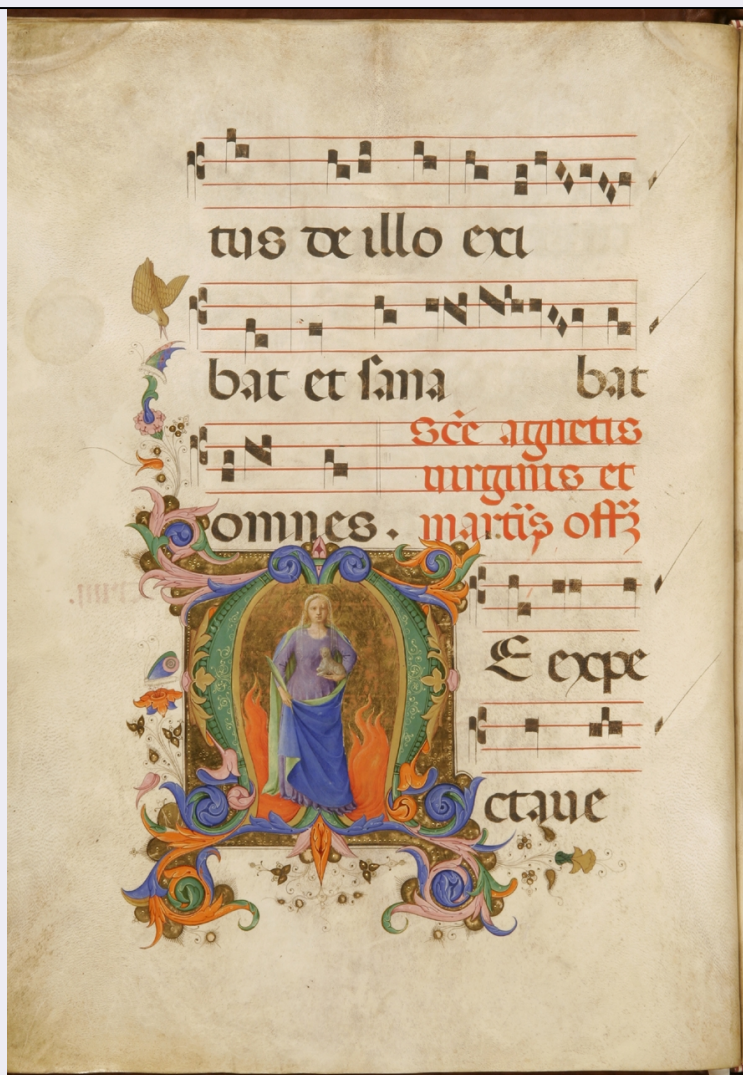 tus de illo exi
bat et sana bat
omnes.
Sc̄e agnetis
uirginis et
mart̄is off̄
ME expe
ctaue